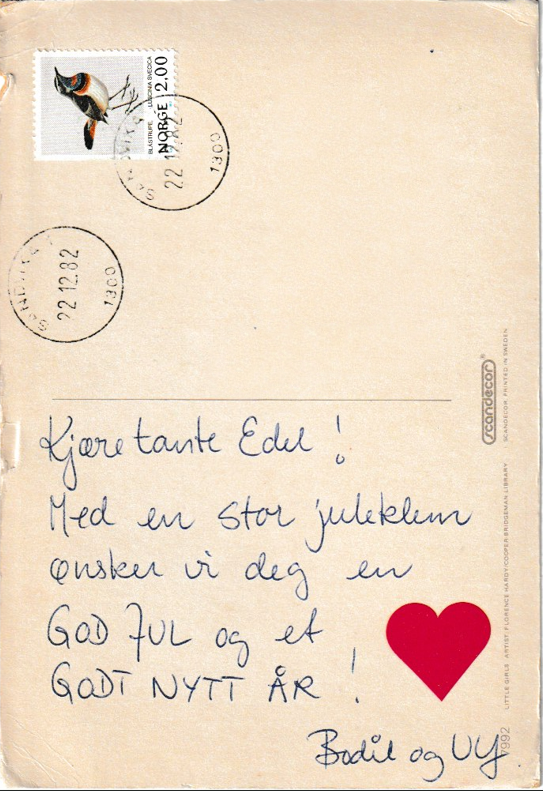 BLÅSTRUPE LUSCINIA SVECICA
NORGE 2.00
22 12.82
1300
SANDVIKA
22 12.82
1300
scandecor®
SCANDECOR, PRINTED IN SWEDEN
Kjære tante Edel!
Med en stor juleklem
ønsker vi deg en
GOD JUL og et
GODT NYTT ÅR!
Bodil og
LITTLE GIRLS ARTIST: FLORENCE HARDY/COOPER-BRIDGEMAN LIBRARY
7992